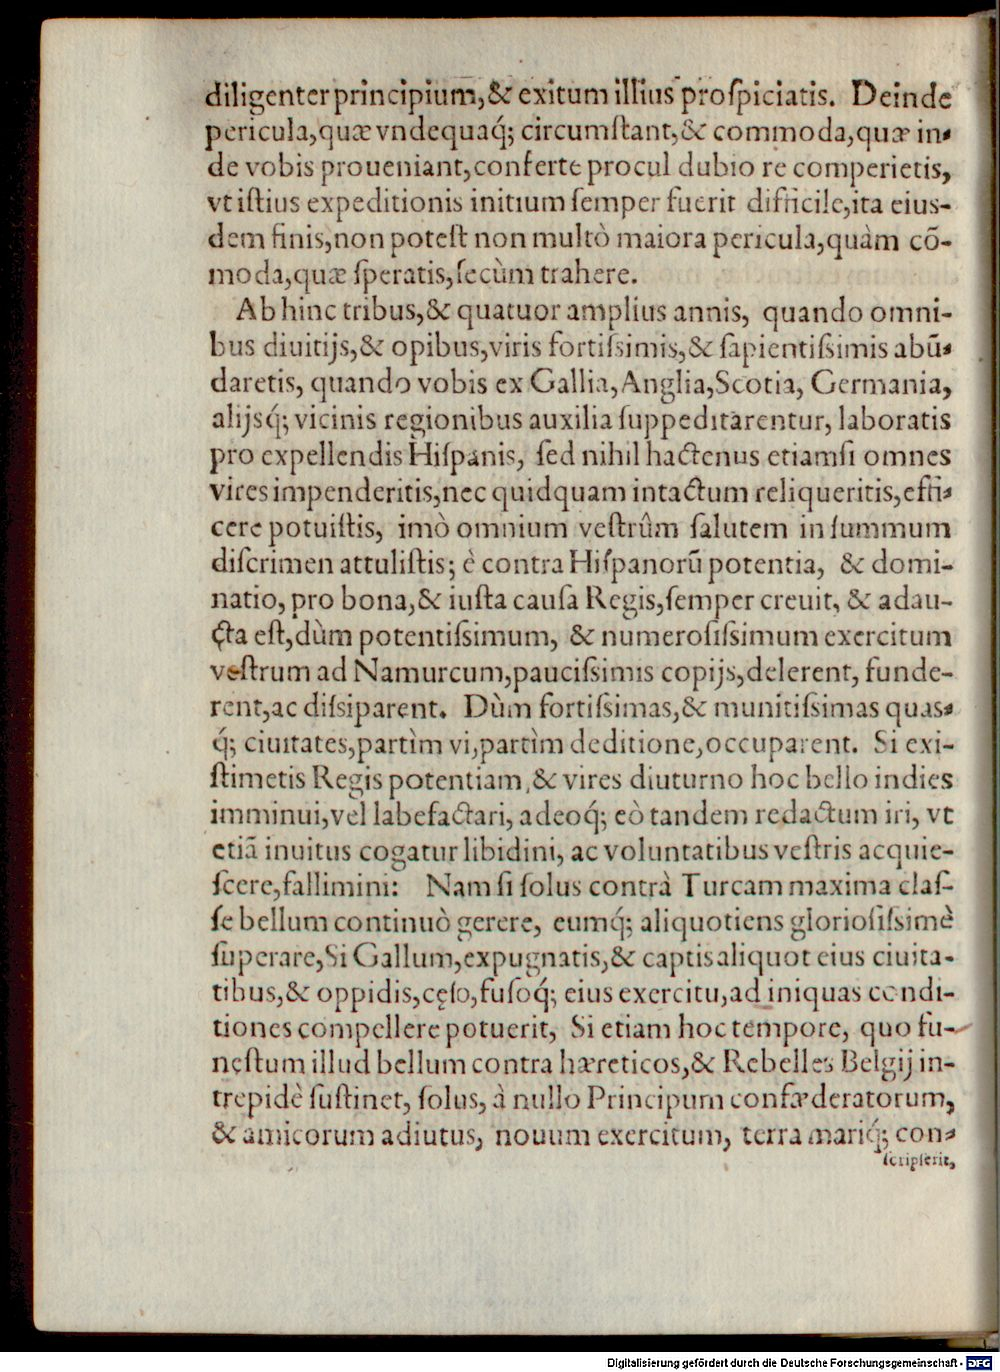 diligenter principium, & exitum illius proſpiciatis. Deinde
pericula, quæ vndequaq́; circumſtant, & commoda, quæ in-
de vobis proueniant, conferte procul dubio re comperietis,
vt iſtius expeditionis initium ſemper fuerit difficile, ita eius-
dem finis, non poteſt non multò maiora pericula, quàm cō-
moda, quæ ſperatis, ſecùm trahere.
Ab hinc tribus, & quatuor amplius annis, quando omni-
bus diuitijs, & opibus, viris fortiſsimis, & ſapientiſsimis abū-
daretis, quando vobis ex Gallia, Anglia, Scotia, Germania,
alijsq́; vicinis regionibus auxilia ſuppeditarentur, laboratis
pro expellendis Hiſpanis, ſed nihil hactenus etiamſi omnes
vires impenderitis, nec quidquam intactum reliqueritis, effi-
cere potuiſtis, imò omnium veſtrûm ſalutem in ſummum
diſcrimen attuliſtis; è contra Hiſpanorū potentia, & domi-
natio, pro bona, & iuſta cauſa Regis, ſemper creuit, & adau-
cta eſt, dùm potentiſsimum, & numeroſiſsimum exercitum
veſtrum ad Namurcum, pauciſsimis copijs, delerent, funde-
rent, ac diſsiparent. Dùm fortiſsimas, & munitiſsimas quas-
q́; ciuitates, partìm vi, partìm deditione, occuparent. Si exi-
ſtimetis Regis potentiam, & vires diuturno hoc bello indies
imminui, vel labefactari, adeoq́; eò tandem redactum iri, vt
etiā inuitus cogatur libidini, ac voluntatibus veſtris acquie-
ſcere, fallimini: Nam ſi ſolus contrà Turcam maxima claſ-
ſe bellum continuò gerere, eumq́; aliquotiens glorioſiſsimè
ſuperare, Si Gallum, expugnatis, & captis aliquot eius ciuita-
tibus, & oppidis, cęſo, fuſoq́; eius exercitu, ad iniquas condi-
tiones compellere potuerit, Si etiam hoc tempore, quo fu-
neſtum illud bellum contra hæreticos, & Rebelles Belgij in-
trepidè ſuſtinet, ſolus, à nullo Principum confæderatorum,
& amicorum adiutus, nouum exercitum, terra mariq́; con-
ſcripſerit,
Digitalisierung gefördert durch die Deutsche Forschungsgemeinschaft - DFG